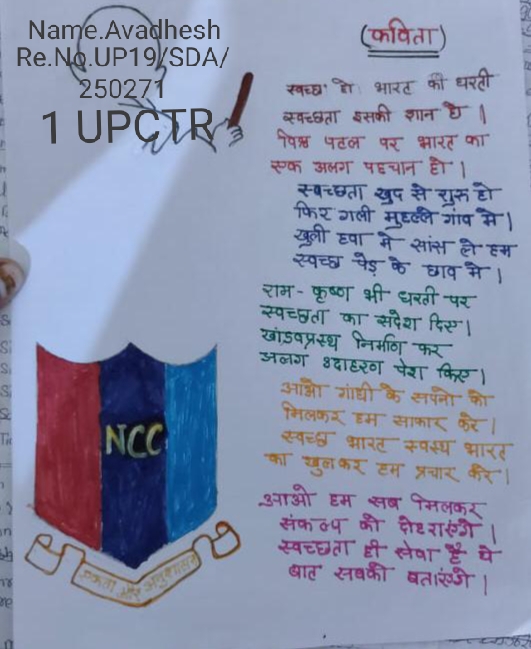 Name.Avadhesh
Re.No.UP19/SDA/
250271
1 UPCTR
(कविता)
स्वच्छ हो भारत की धरती
स्वच्छता इसकी शान हो |
विश्व पटल पर भारत का
एक अलग पहचान हो |
स्वच्छता खुद से शुरू हो
फिर गली मुहल्ले गांव मे |
खुली हवा मे सांस ले हम
स्वच्छ पेड़ के छाव मे |
राम - कृष्ण भी धरती पर
स्वच्छता का संदेश दिए |
खांडवप्रस्थ निर्माण कर
अलग उदाहरण पेश किए |
आओ गांधी के सपनो को
मिलकर हम साकार करे |
स्वच्छ भारत स्वस्थ भारत
का खुलकर हम प्रचार करे |
आओ हम सब मिलकर
संकल्प को दोहराएंगे |
स्वच्छता ही सेवा है ये
बात सबको बताएंगे |
NCC
एकता और अनुशासन